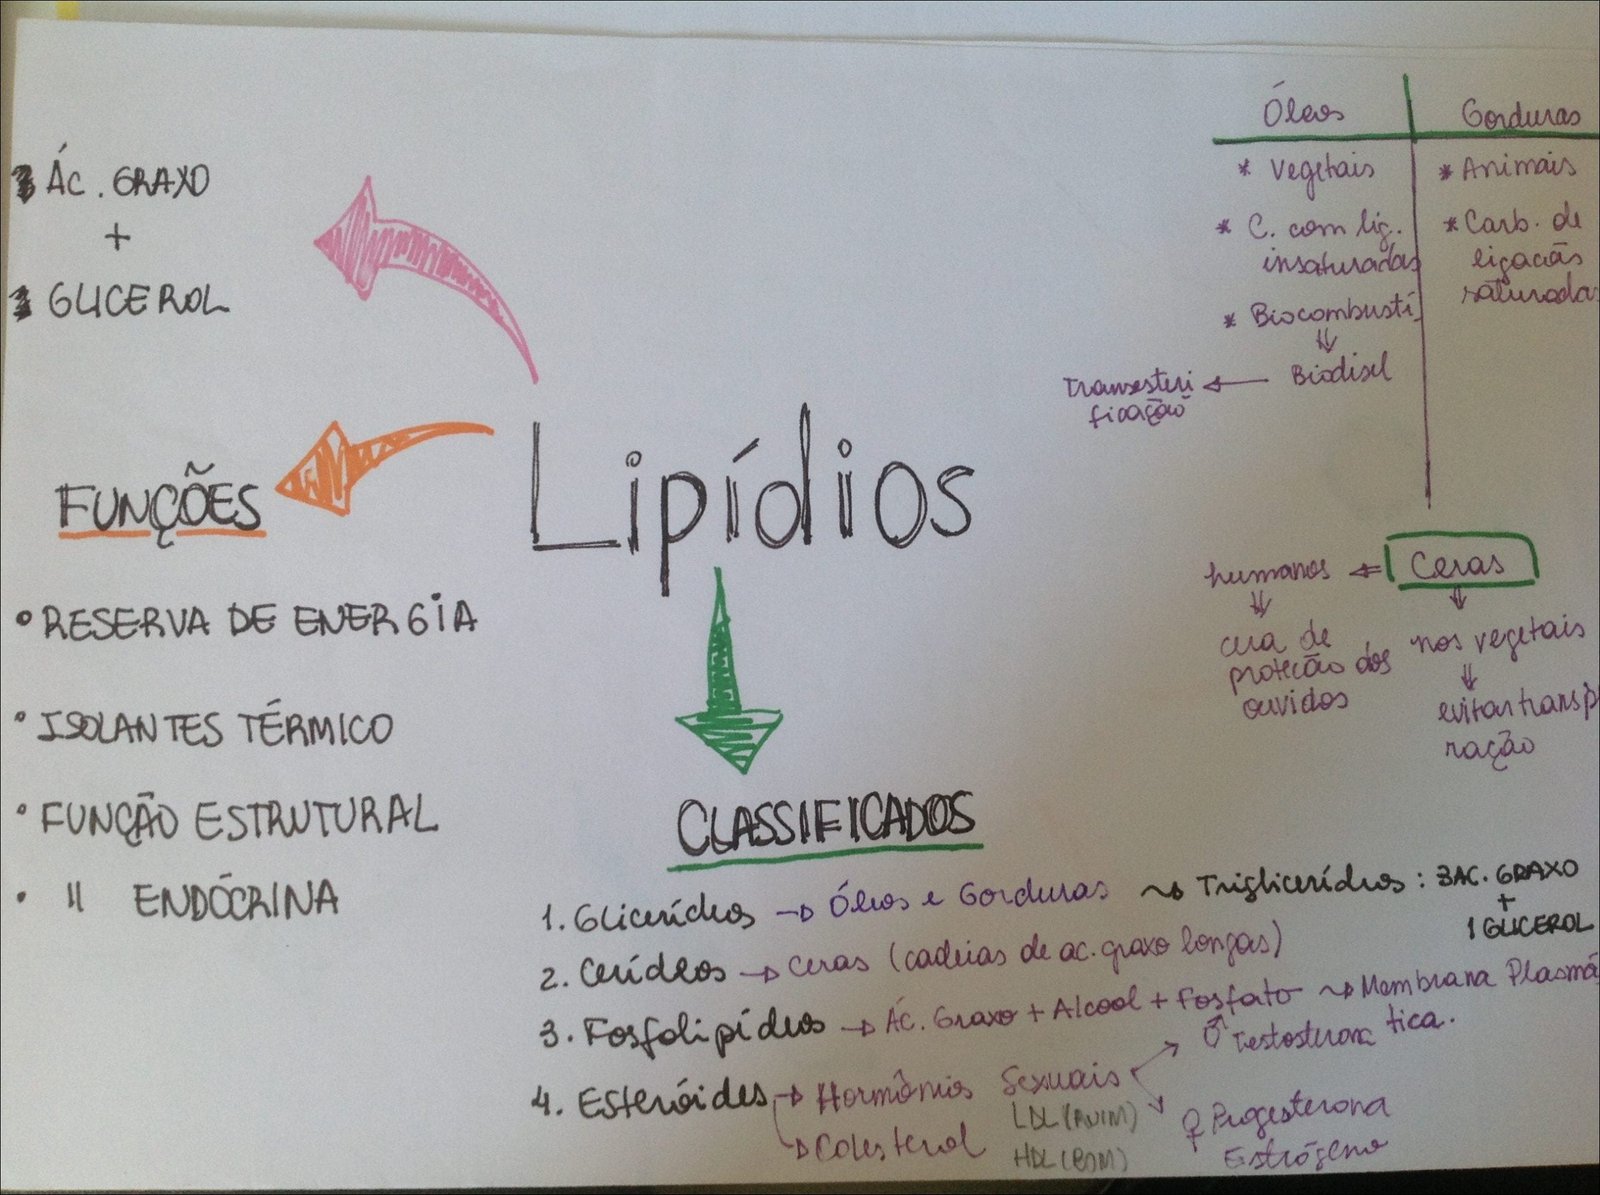 Lipídios
ÁC. GRAXO
+
GLICEROL
FUNÇÕES
• RESERVA DE ENERGIA
• ISOLANTES TÉRMICO
• FUNÇÃO ESTRUTURAL
• 11 ENDÓCRINA
Óleos
* Vegetais
* C. com lig.
insaturadas
* Biocombustí
Biodisel
Transesteri
ficação
Gorduras
* Animais
* Carb. de
ligacãs
saturadas
Ceras
humanos
cera de
proteção dos
ouvidos
nos vegetais
evitar transp
ração
CLASSIFICADOS
1. Glicerídeos → Óleos e Gorduras → Triglicerídeos: 3AC. GRAXO
+
1 GLICEROL
2. Cerídeos → Ceras (cadeias de ac. graxo longas)
3. Fosfolipídeos → Ác. Graxo + Alcool + Fosfato → Membrana Plasmá
tica.
4. Esteróides → Hormônios Sexuais
♂ Testosterona
♀ Progesterona
Estrógeno
→ Colesterol
LDL (RUIM)
HDL (BOM)